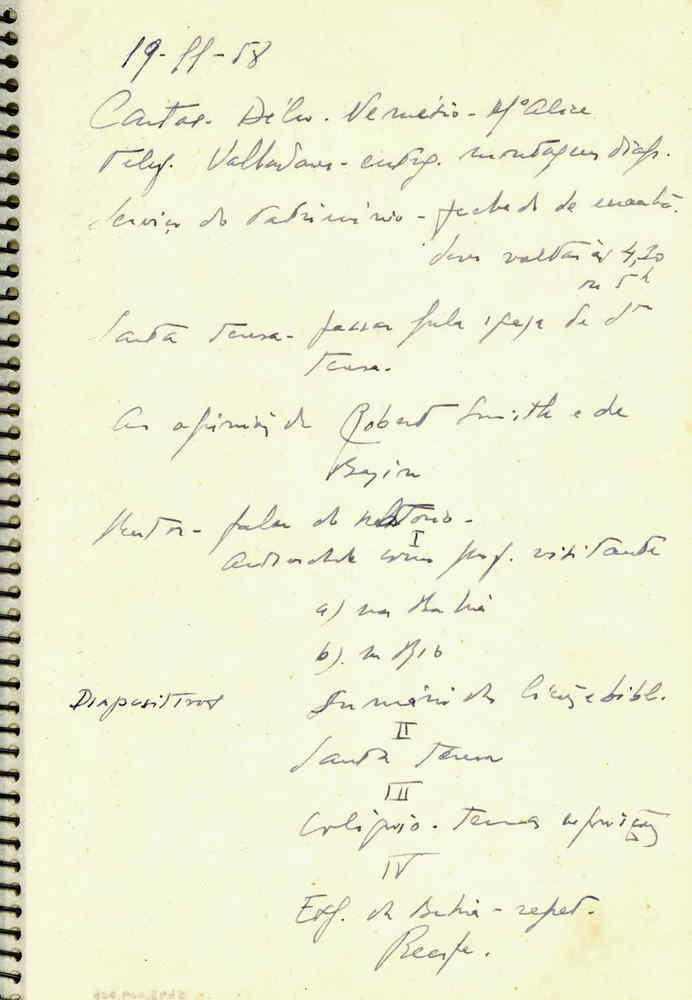 19-11-58
Cartas. Délio. Nemésio - Mª Alice
Telef. Valladares - entreg. montagem diaps.
Serviço do Património - fechado de encontrá.
devo voltar às 4,30
ou 5 h
Santa Teresa - passar pela igreja de Sta
Teresa.
As opiniões de Robert Smith e de
Bazin
Reitor - falar do relatório -
I
Actividade como prof. visitante
a) na Bahia
b) no Rio
Diapositivos Sumário das lições e bibl.
II
Santa Teresa
III
Colóquio. Temas
IV
Exp. da Bahia - repet.
Recife.